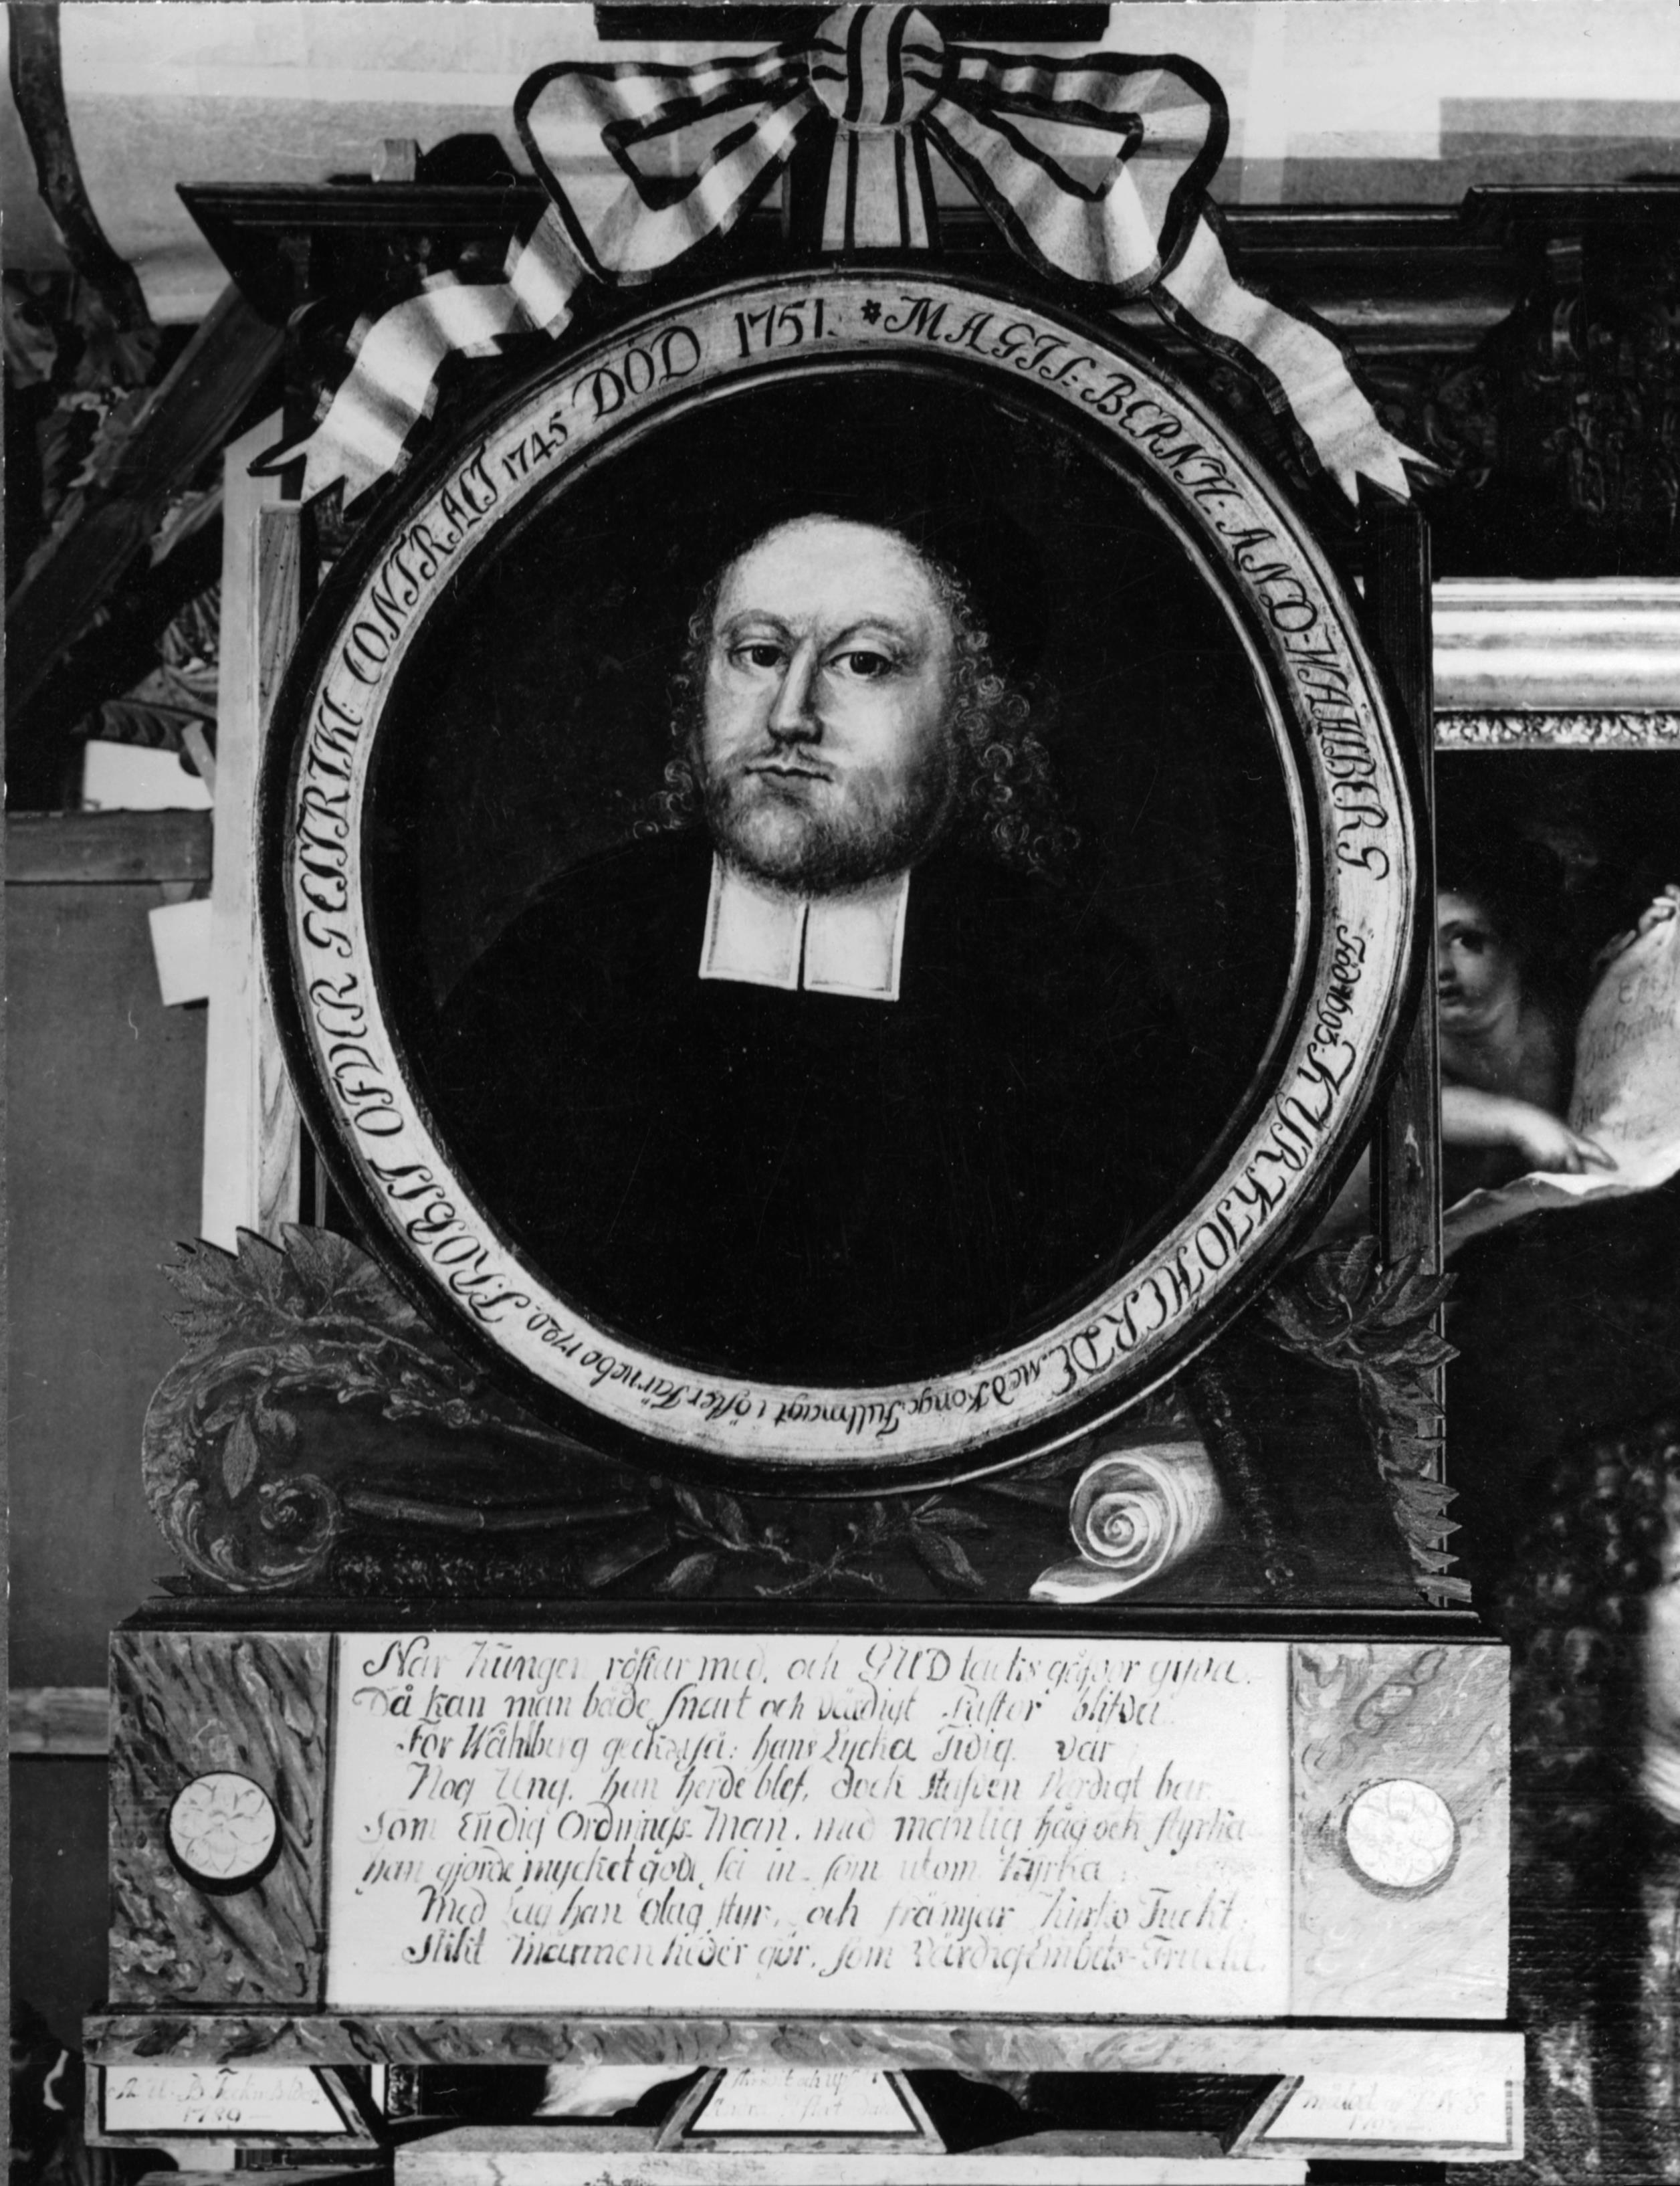 * MAGIS: BERNH: AND-WÅHLBERG. Född 1693. KYRKIOHERDE. med Kongs. Fullmagt i öster Färnebo 1720. PROBST ÖFVER GESTRIKL: CONTRACT 1745 DÖD 1751.
När Kungen röstar med, och GUD täcks gåfvor gifva.
Då kan man både snart och värdigt Pastor blifva
För Wåhlberg geck så: hans Lycka Tidig var
Nog Ung, han herde blef, dock stafven värdigt bar
Som Ordnings-Man, med manlig håg och styrka
han gjorde mycket godt, så in- som utom Kyrka
Med lag han olag styr, och främjar Kyrko Tuckt
Slikt mannen heder gör, som värdig Embets-Fruckt.
1789